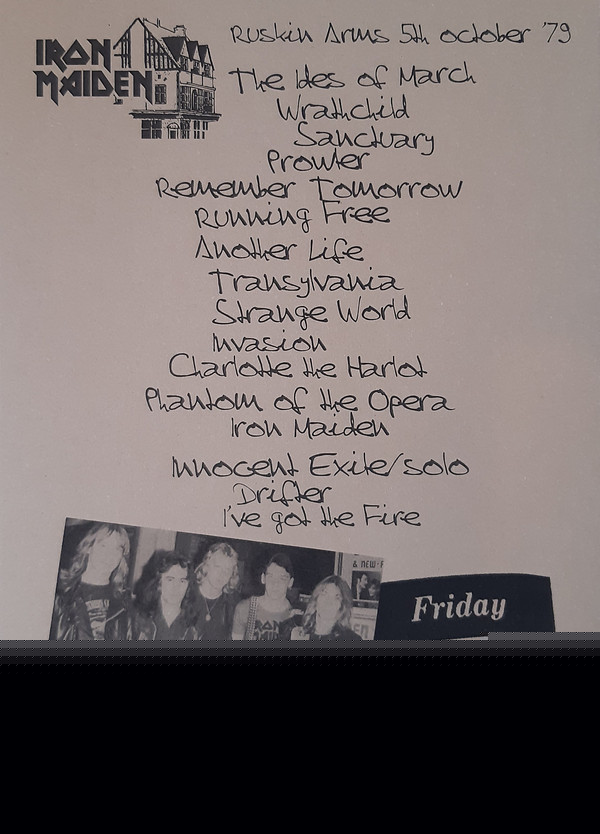 IRON
MAIDEN
Ruskin Arms 5th october '79
The Ides of March
Wrathchild
Sanctuary
Prowler
Remember Tomorrow
Running Free
Another Life
Transylvania
Strange World
Invasion
Charlotte the Harlot
Phantom of the Opera
Iron Maiden
Innocent Exile/solo
Drifter
I've got the Fire
& NEW
IRON
Friday